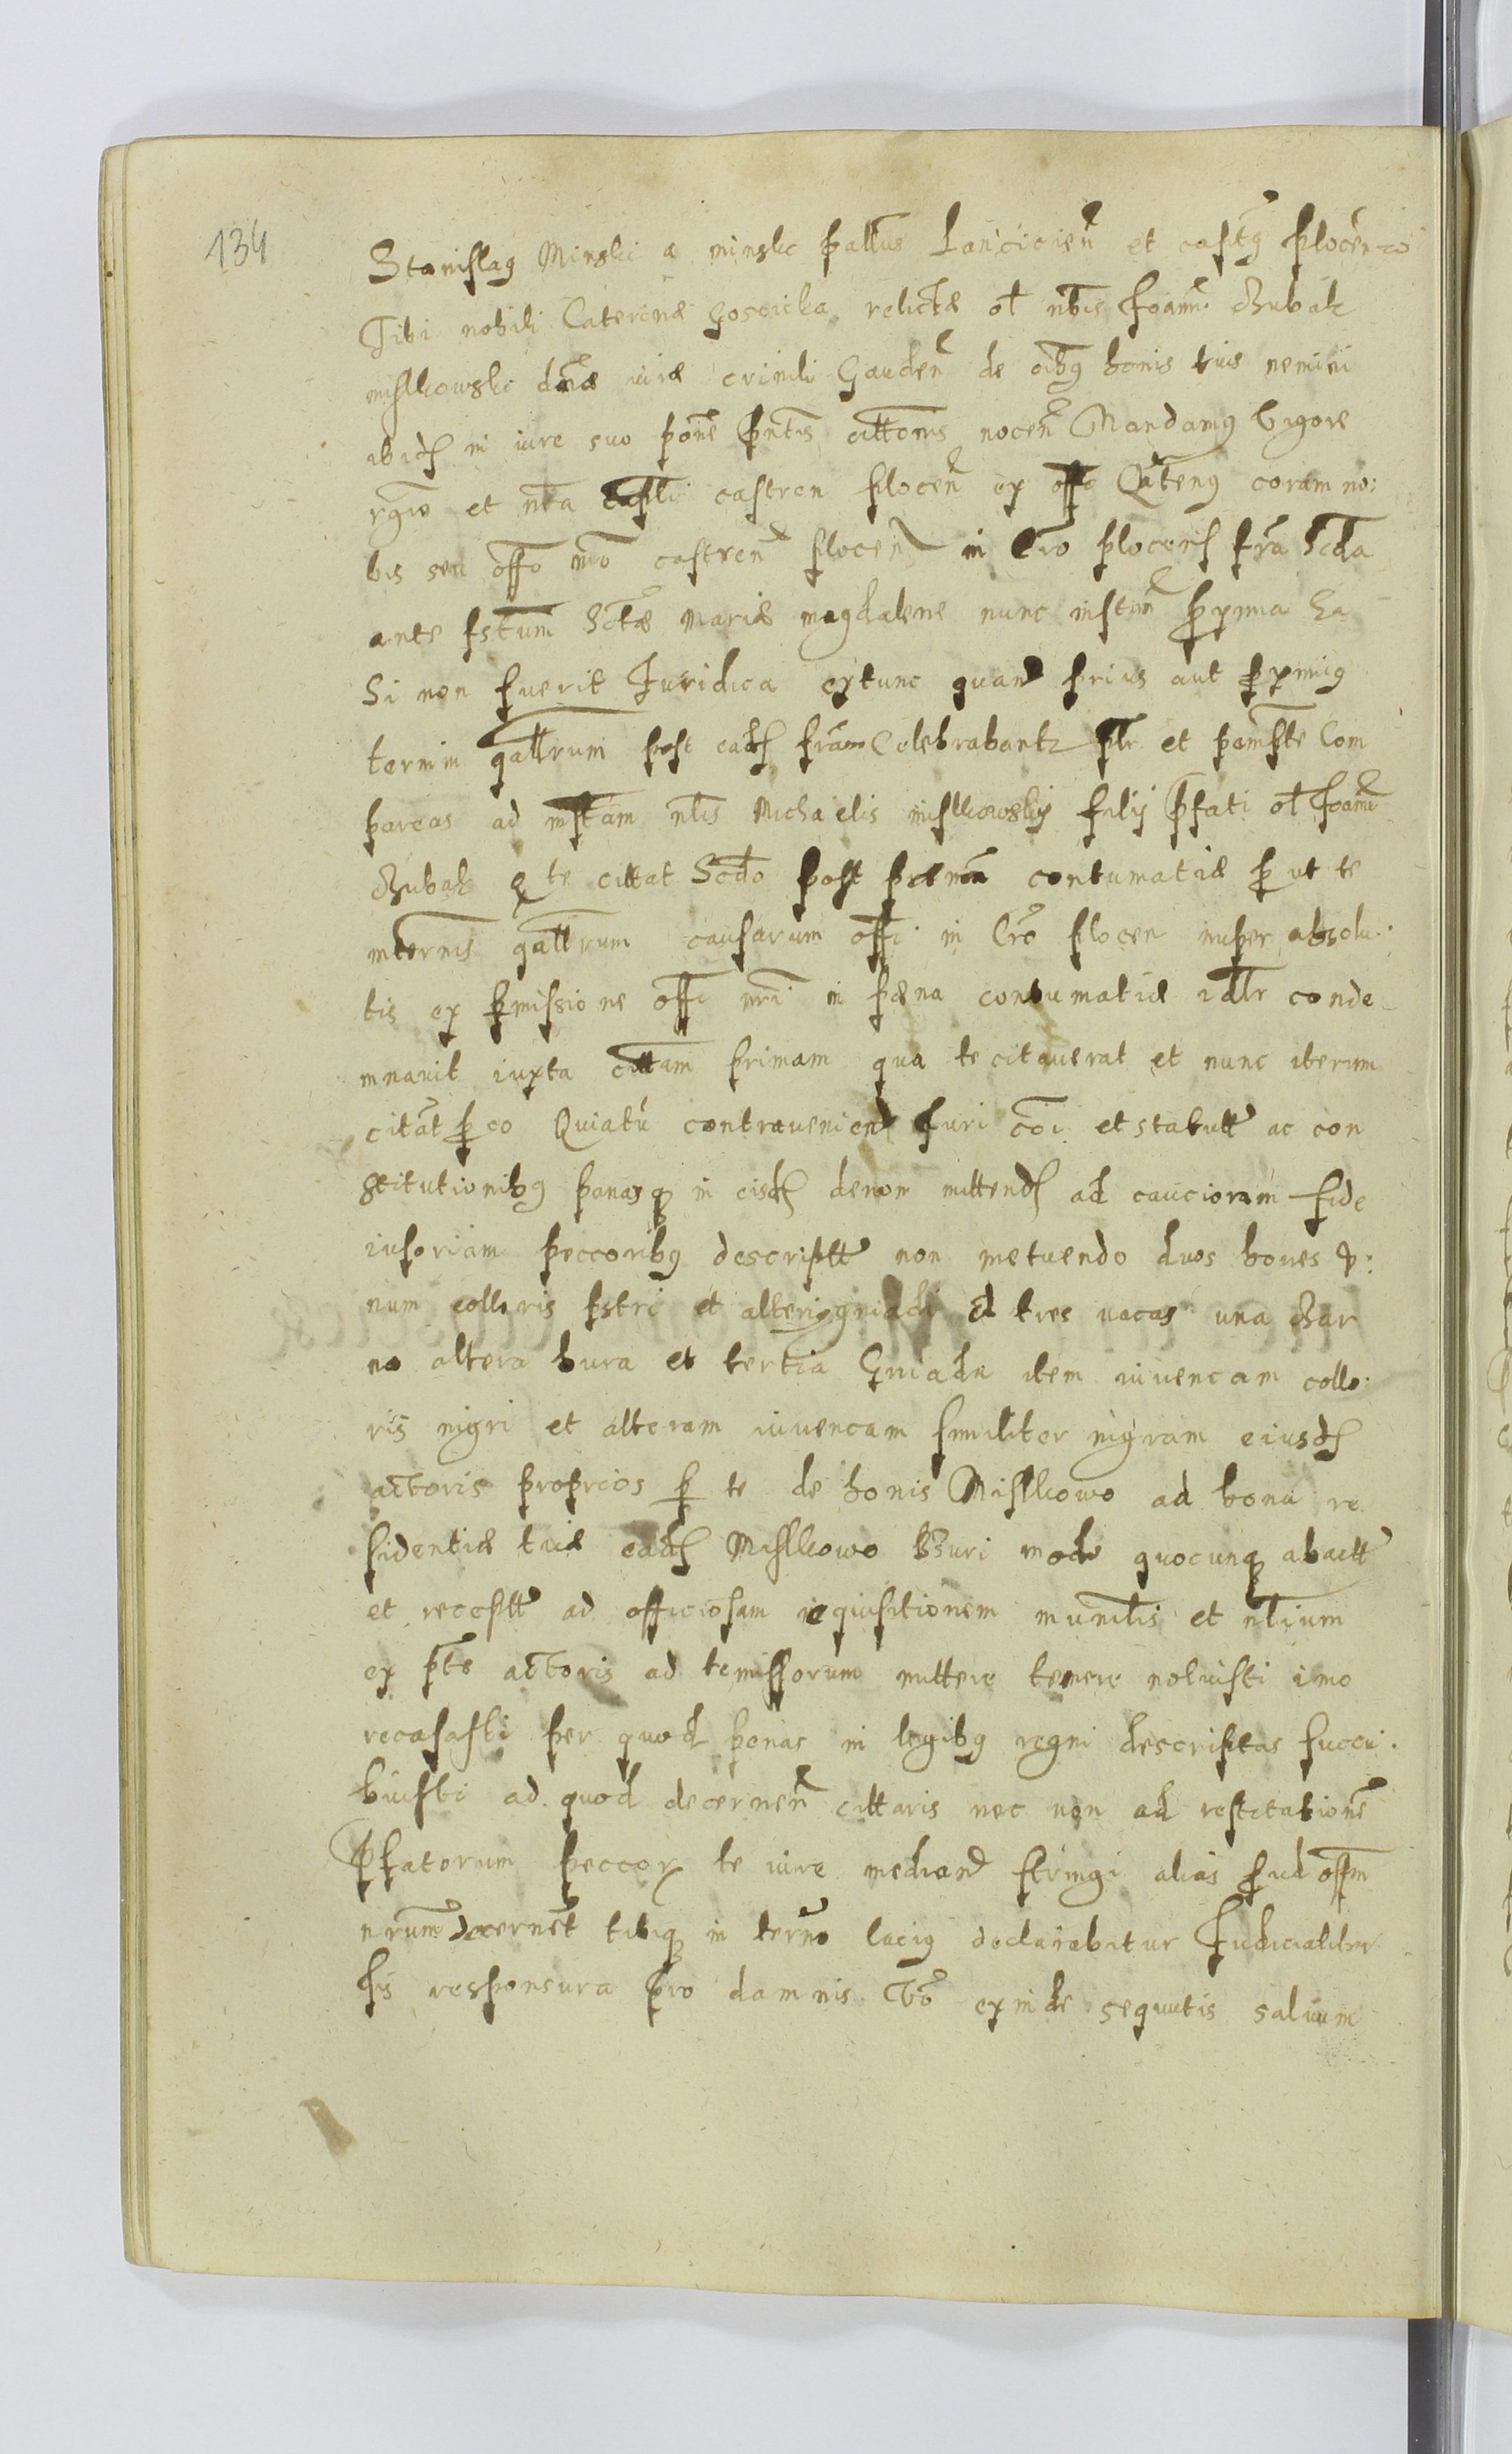 134
Stanislaꝯ Minski a minsk pallnus Lancicien et castrꝯ plocen
Tibi nobili Caterinæ Goscicka relictæ ol nblis Joann Bubak
mislkowski dnæ iuræ criminli Gauden de oibꝯ bonis tuis nemini
ibid in iure suo pone pntis cittonis nocen Mandamꝯ Vigore
rgio et nra castren plocen ex offo Qatenꝯ coram no:
bis seu offo nro castren plocen in Cro plocen fra Scda
ante fstum Sctæ Mariæ magdalene nunc instan proxima ea
Si non fuerit Juridica extunc quand prius aut proximiꝯ
termini qattrum post ead fram Celebrabantz plr et pemptte Com
pareas ad instam nlis Michaelis mislkowskij filij pfati ol Joann
Bubak q te cittat Scdo post contumatiæ ꝑ ut te
internis qattrum causarum offi in Cro plocen nuper absolu:
tis ex permissione offi nri in pæna contumatiæ idlr conde
mnauit iuxta cittam primam qua te citauerat et nunc iterum
citat ꝑ eo Quia tu contraueniend Juri coi et statutt ac con
stitutionibꝯ pænasqꝫ in eisd denon mittend ad caucioram fide
iusoriam peccoribꝯ descriptt non metuendo duos boues v:
num colloris pstri et alteriꝯ gniadi et tres vacas una Czar
na altera bura et tertia Gniada item iuuencam collo:
ris nigri et alteram iuuencam similiter nigram eiusd
actoris proprios ꝑ te de bonis Mislkowo ad bona re
sidentiæ tuæ ead Mislkowo modo quocunqꝫ abactt
et receptt ad officiosam requisitionem et nlium
ex pte actoris ad te missorum mittere temere noluisti imo
recusasti per quod penas in legibꝯ regni descriptas succu:
buisti ad quod decernen cittaris nec non ad restitutione
Pfatorum peccorꝝ te iure mediand stringi alias offm
nrum decernet tibiqꝫ in termo laciꝯ declarabitur Judicialiter
sis responsura pro damnis Vo exinde sequutis saluum